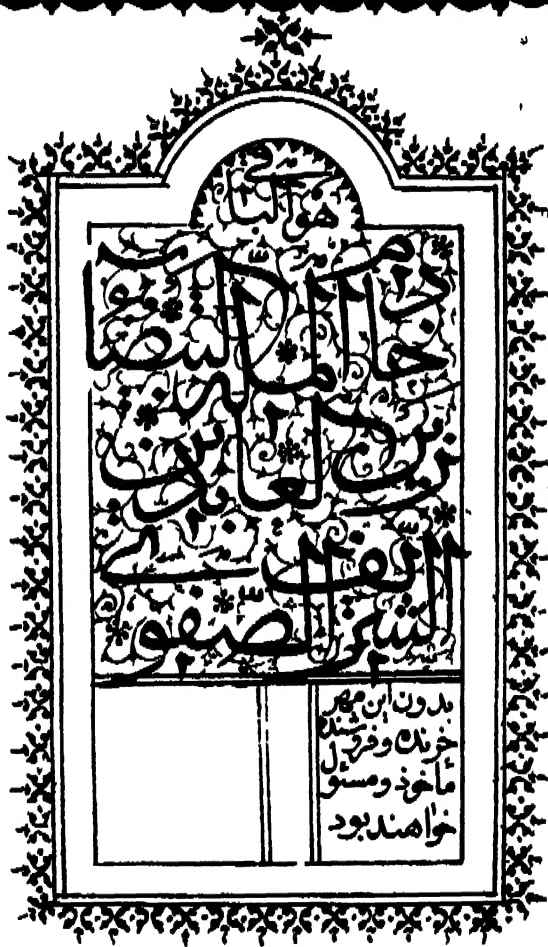 هو الباقی
خادم الملة البیضاء
زین العابدین
الشریف الصفوی
بدون این مهر
خرنده و فروشنده
مأخوذ و مسئول
خواهند بود